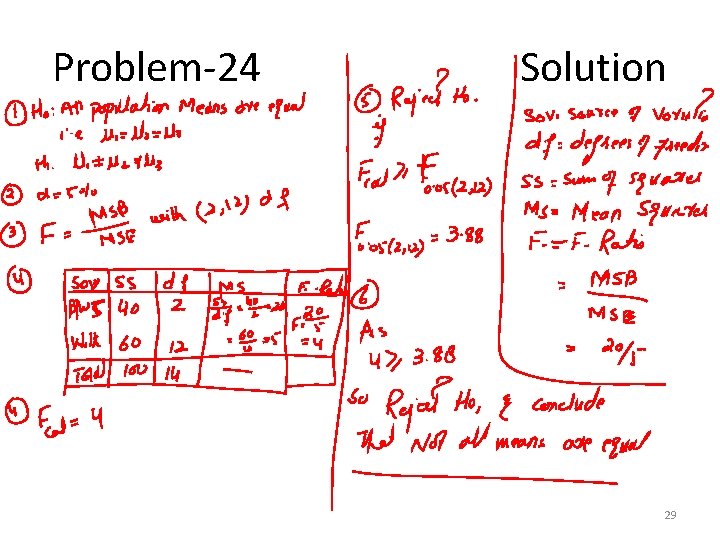 Problem-24
Solution
① H₀: All population Means are equal
i.e μ₁=μ₂=μ₃
H₁. μ₁≠μ₂≠μ₃
② α=5%
③ F= MSB/MSE with (2,12) df
④
SOV SS df MS F-Ratio
B/w S 40 2 SS/df = 40/2 =20 F= 20/5
With 60 12 = 60/ =5 =4
Total 100 14 —
④ Fcal = 4
⑤ Reject H₀.
if
Fcal ≥ F 0.05(2,12)
F 0.05(2,12) = 3.88
⑥
As
4 ≥ 3.88
So Reject H₀, & conclude
That Not all means are equal
SOV: Source of
df= degrees of freedo
SS = Sum of Squares
MS= Mean Squares
F = F- Ratio
= MSB/MSE
= 20/5
29